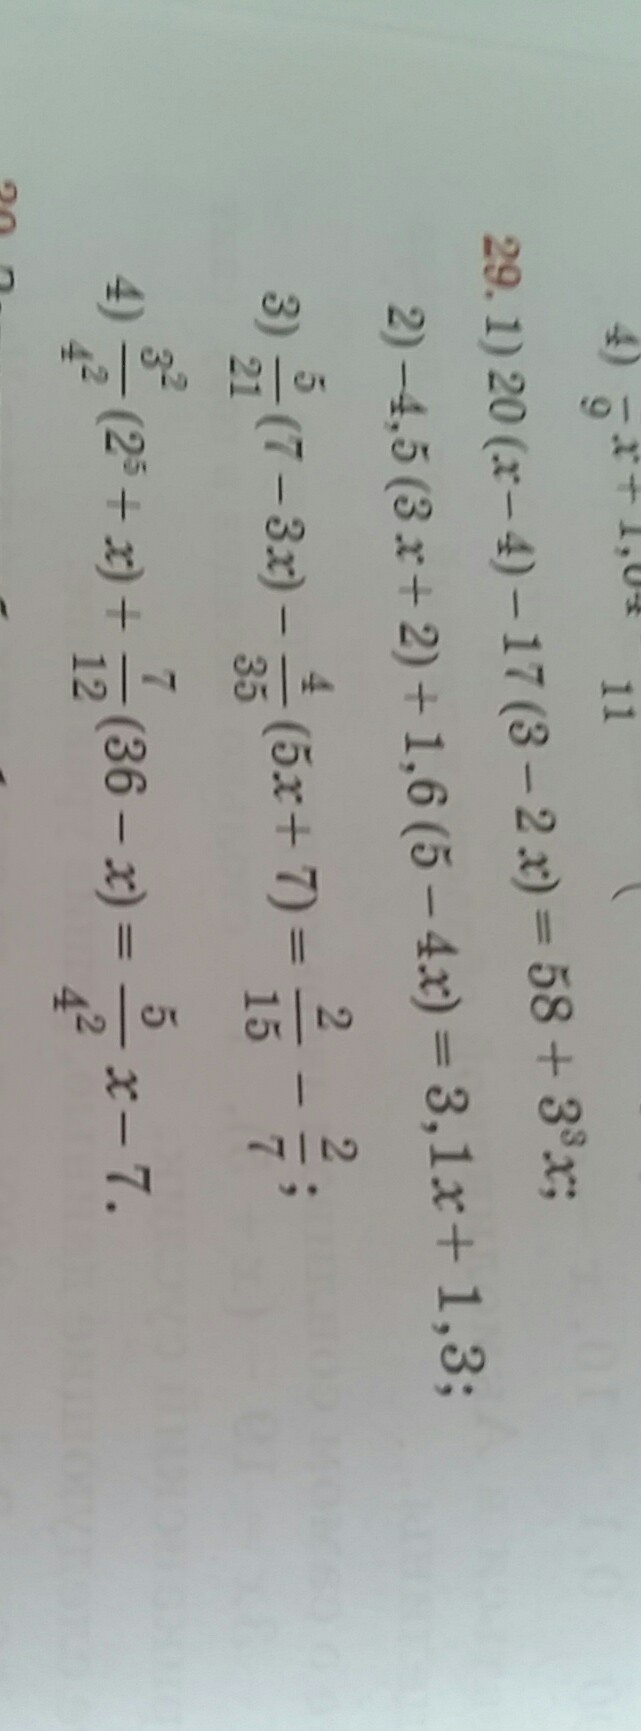 4) —/9 x + 1,04 11 (
29. 1) 20 (x − 4) − 17 (3 − 2x) = 58 + 3³x;
2) −4,5 (3x + 2) + 1,6 (5 − 4x) = 3,1x + 1,3;
3) 5/21 (7 − 3x) − 4/35 (5x + 7) = 2/15 − 2/7;
4) 3²/4² (2⁵ + x) + 7/12 (36 − x) = 5/4² x − 7.